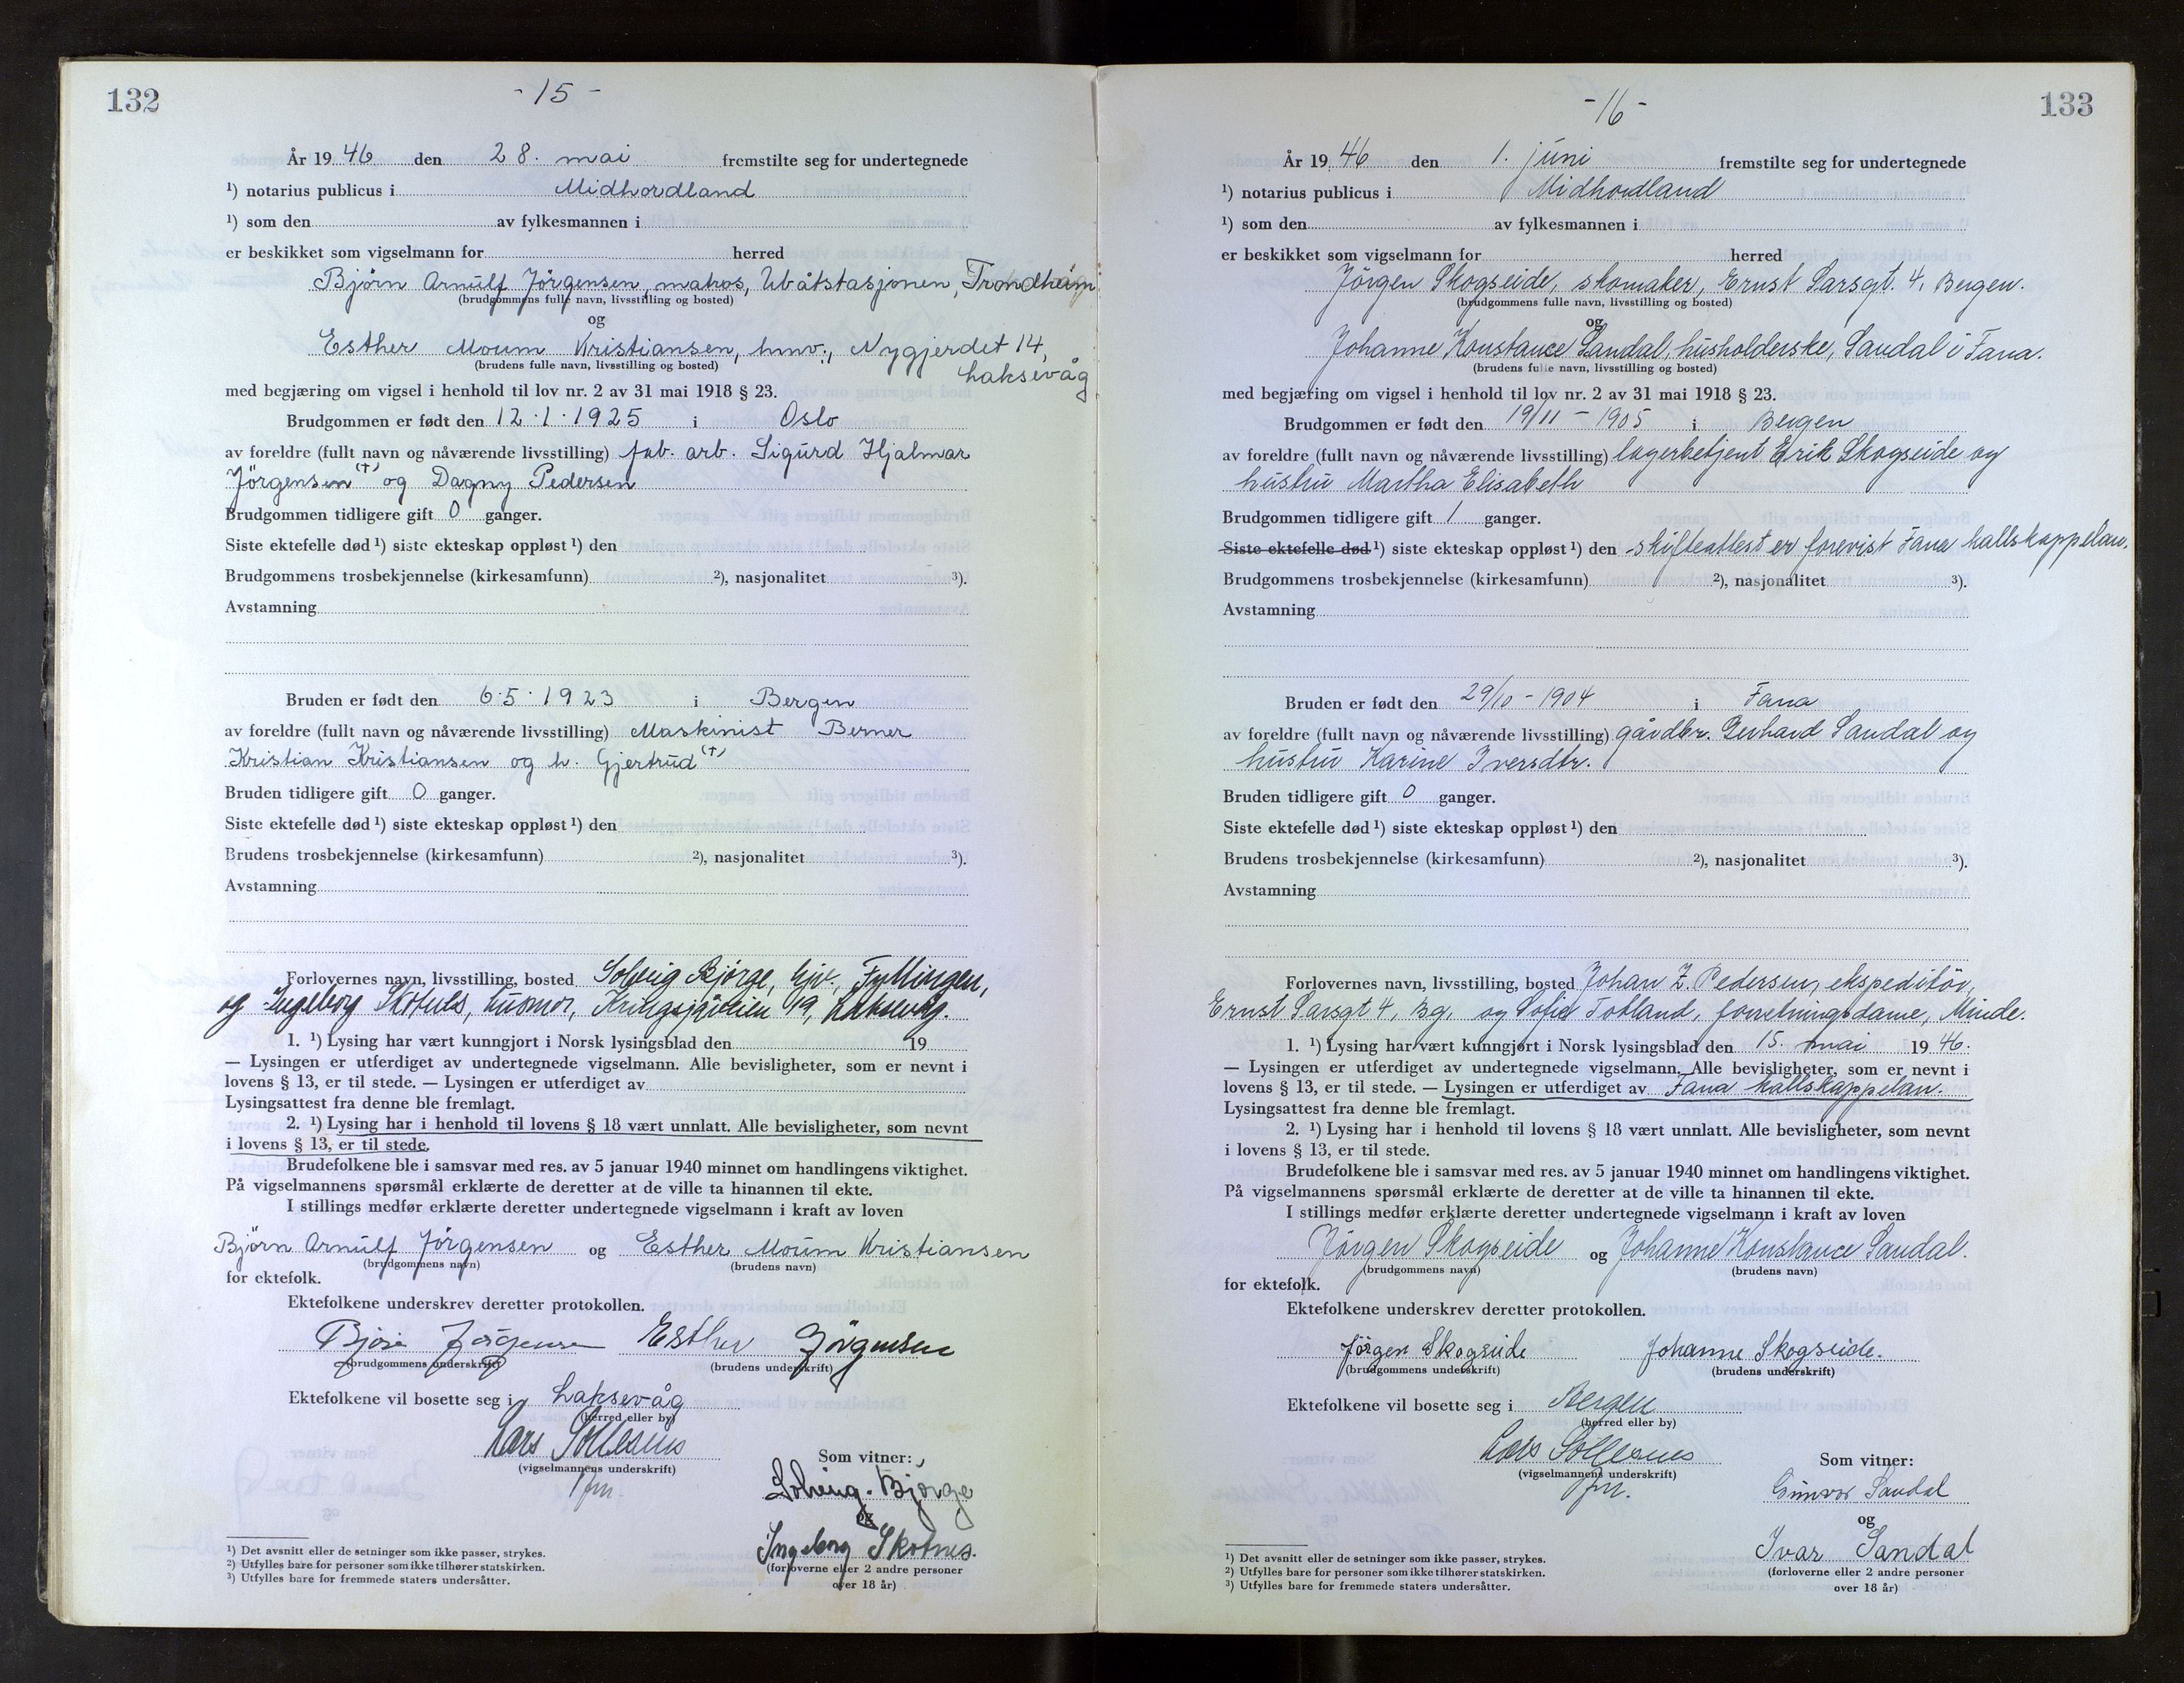 132
- 15 -
År 19 46 den 28. mai fremstilte seg for undertegnede
¹) notarius publicus i Midhordland
¹) som den av fylkesmannen i
er beskikket som vigselmann for herred
Bjørn Arnulf Jörgensen, matros, Ubåtstasjonen, Trondheim
(brudgommens fulle navn, livsstilling og bosted)
og
Esther Moum Kristiansen, hmv., Nygjerdet 14,
Laksevåg
(brudens fulle navn, livsstilling og bosted)
med begjæring om vigsel i henhold til lov nr. 2 av 31 mai 1918 § 23.
Brudgommen er født den 12.1.1925 i Oslo
av foreldre (fullt navn og nåværende livsstilling) fab. arb. Sigurd Hjalmar
Jörgensen (+) og Dagny Pedersen
Brudgommen tidligere gift 0 ganger.
Siste ektefelle død ¹) siste ekteskap oppløst ¹) den
Brudgommens trosbekjennelse (kirkesamfunn) ²), nasjonalitet ³).
Avstamning
Bruden er født den 6.5.1923 i Bergen
av foreldre (fullt navn og nåværende livsstilling) Maskinist Berner
Kristian Kristiansen og h. Gjertrud (+)
Bruden tidligere gift 0 ganger.
Siste ektefelle død ¹) siste ekteskap oppløst ¹) den
Brudens trosbekjennelse (kirkesamfunn) ²), nasjonalitet ³).
Avstamning
Forlovernes navn, livsstilling, bosted Solveig Bjørge, hjv. Fyllingen,
og Ingeborg Skotnes, husmor, 49, Laksevåg.
1. ¹) Lysing har vært kunngjort i Norsk lysingsblad den 19
— Lysingen er utferdiget av undertegnede vigselmann. Alle bevisligheter, som er nevnt i
lovens § 13, er til stede. — Lysingen er utferdiget av
Lysingsattest fra denne ble fremlagt.
2. ¹) Lysing har i henhold til lovens § 18 vært unnlatt. Alle bevisligheter, som nevnt
i lovens § 13, er til stede.
Brudefolkene ble i samsvar med res. av 5 januar 1940 minnet om handlingens viktighet.
På vigselmannens spørsmål erklærte de deretter at de ville ta hinannen til ekte.
I stillings medfør erklærte deretter undertegnede vigselmann i kraft av loven
Björn Arnulf Jörgensen og Esther Moum Kristiansen
(brudgommens navn) (brudens navn)
for ektefolk.
Ektefolkene underskrev deretter protokollen.
Bjørn Jørgensen Esther Jörgensen
(brudgommens underskrift) (brudens underskrift)
Ektefolkene vil bosette seg i Laksevåg
(herred eller by)
Lars Söllesnes
(vigselmannens underskrift)
Som vitner:
Solveig Bjørge
og
Ingeborg Skotnes.
(forloverne eller 2 andre personer
over 18 år)
¹) Det avsnitt eller de setninger som ikke passer, strykes.
²) Utfylles bare for personer som ikke tilhører statskirken.
³) Utfylles bare for fremmede staters undersåtter.
133
- 16 -
År 19 46 den 1. juni fremstilte seg for undertegnede
¹) notarius publicus i Midhordland
¹) som den av fylkesmannen i
er beskikket som vigselmann for herred
Jörgen Skogseide, skomaker, Ernst Sarsgt. 4, Bergen.
(brudgommens fulle navn, livsstilling og bosted)
og
Johanne Konstance Sandal, husholderske, Sandal i Fana.
(brudens fulle navn, livsstilling og bosted)
med begjæring om vigsel i henhold til lov nr. 2 av 31 mai 1918 § 23.
Brudgommen er født den 19/11 - 1905 i Bergen
av foreldre (fullt navn og nåværende livsstilling) lagerbetjent Erik Skogseide og
hustru Martha Elisabeth
Brudgommen tidligere gift 1 ganger.
Siste ektefelle død ¹) siste ekteskap oppløst ¹) den - skifteattest er forevist Fana kallskappelan.
Brudgommens trosbekjennelse (kirkesamfunn) ²), nasjonalitet ³).
Avstamning
Bruden er født den 29/10 - 1904 i Fana
av foreldre (fullt navn og nåværende livsstilling) gårdbr. Gerhard Sandal og
hustru Karine Iversdtr.
Bruden tidligere gift 0 ganger.
Siste ektefelle død ¹) siste ekteskap oppløst ¹) den
Brudens trosbekjennelse (kirkesamfunn) ²), nasjonalitet ³).
Avstamning
Forlovernes navn, livsstilling, bosted Johan Z. Pedersen, ekspeditör,
Ernst Sarsgt 4, Bg. og Sofie Totland, forretningsdame, Minde.
1. ¹) Lysing har vært kunngjort i Norsk lysingsblad den 15. mai 19 46.
— Lysingen er utferdiget av undertegnede vigselmann. Alle bevisligheter, som er nevnt i
lovens § 13, er til stede. — Lysingen er utferdiget av Fana kallskappelan.
Lysingsattest fra denne ble fremlagt.
2. ¹) Lysing har i henhold til lovens § 18 vært unnlatt. Alle bevisligheter, som nevnt
i lovens § 13, er til stede.
Brudefolkene ble i samsvar med res. av 5 januar 1940 minnet om handlingens viktighet.
På vigselmannens spørsmål erklærte de deretter at de ville ta hinannen til ekte.
I stillings medfør erklærte deretter undertegnede vigselmann i kraft av loven
Jörgen Skogseide og Johanne Konstance Sandal.
(brudgommens navn) (brudens navn)
for ektefolk.
Ektefolkene underskrev deretter protokollen.
Jörgen Skogseide Johanne Skogseide.
(brudgommens underskrift) (brudens underskrift)
Ektefolkene vil bosette seg i Bergen
(herred eller by)
Lars Söllesnes
(vigselmannens underskrift)
Som vitner:
Gunvor Sandal
og
Ivar Sandal
(forloverne eller 2 andre personer
over 18 år)
¹) Det avsnitt eller de setninger som ikke passer, strykes.
²) Utfylles bare for personer som ikke tilhører statskirken.
³) Utfylles bare for fremmede staters undersåtter.